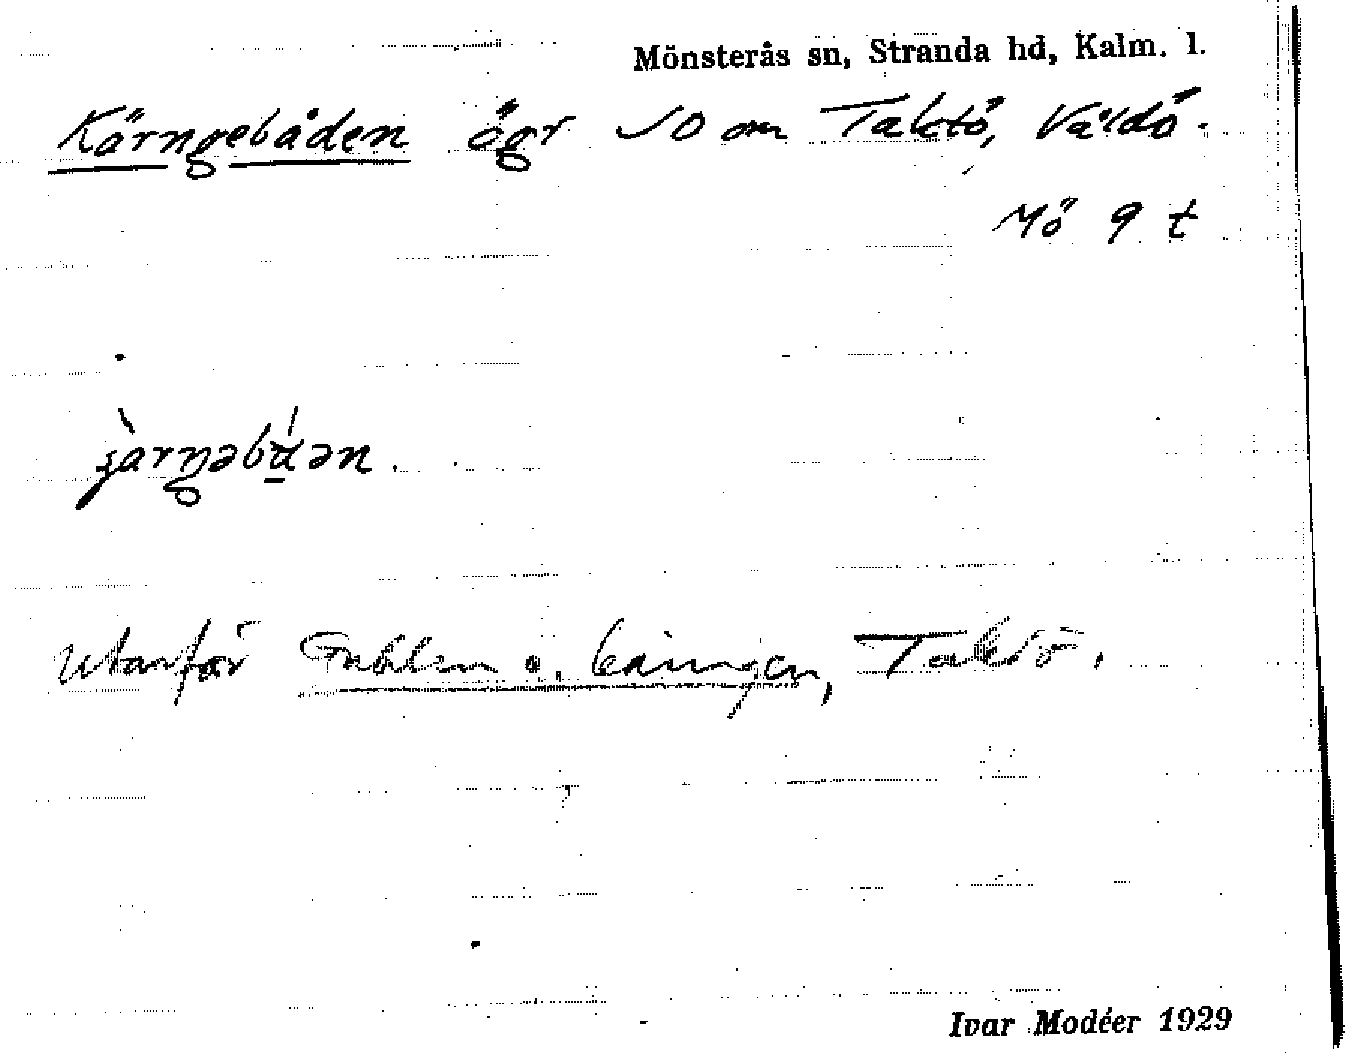 Mönsterås sn, Stranda hd, Kalm. l.
Kärngebåden ögr SO om Taktö, Väldö.
Mö 9 t
utanför Gubben o. käringen, Taktö.
Ivar Modéer 1929